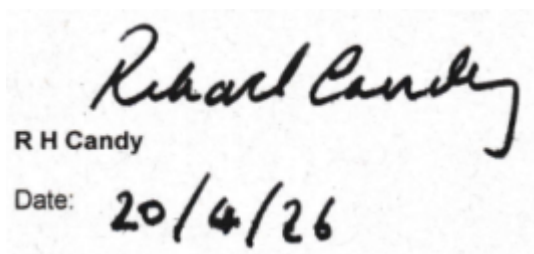 Richard Candy
R H Candy
Date: 20/4/26